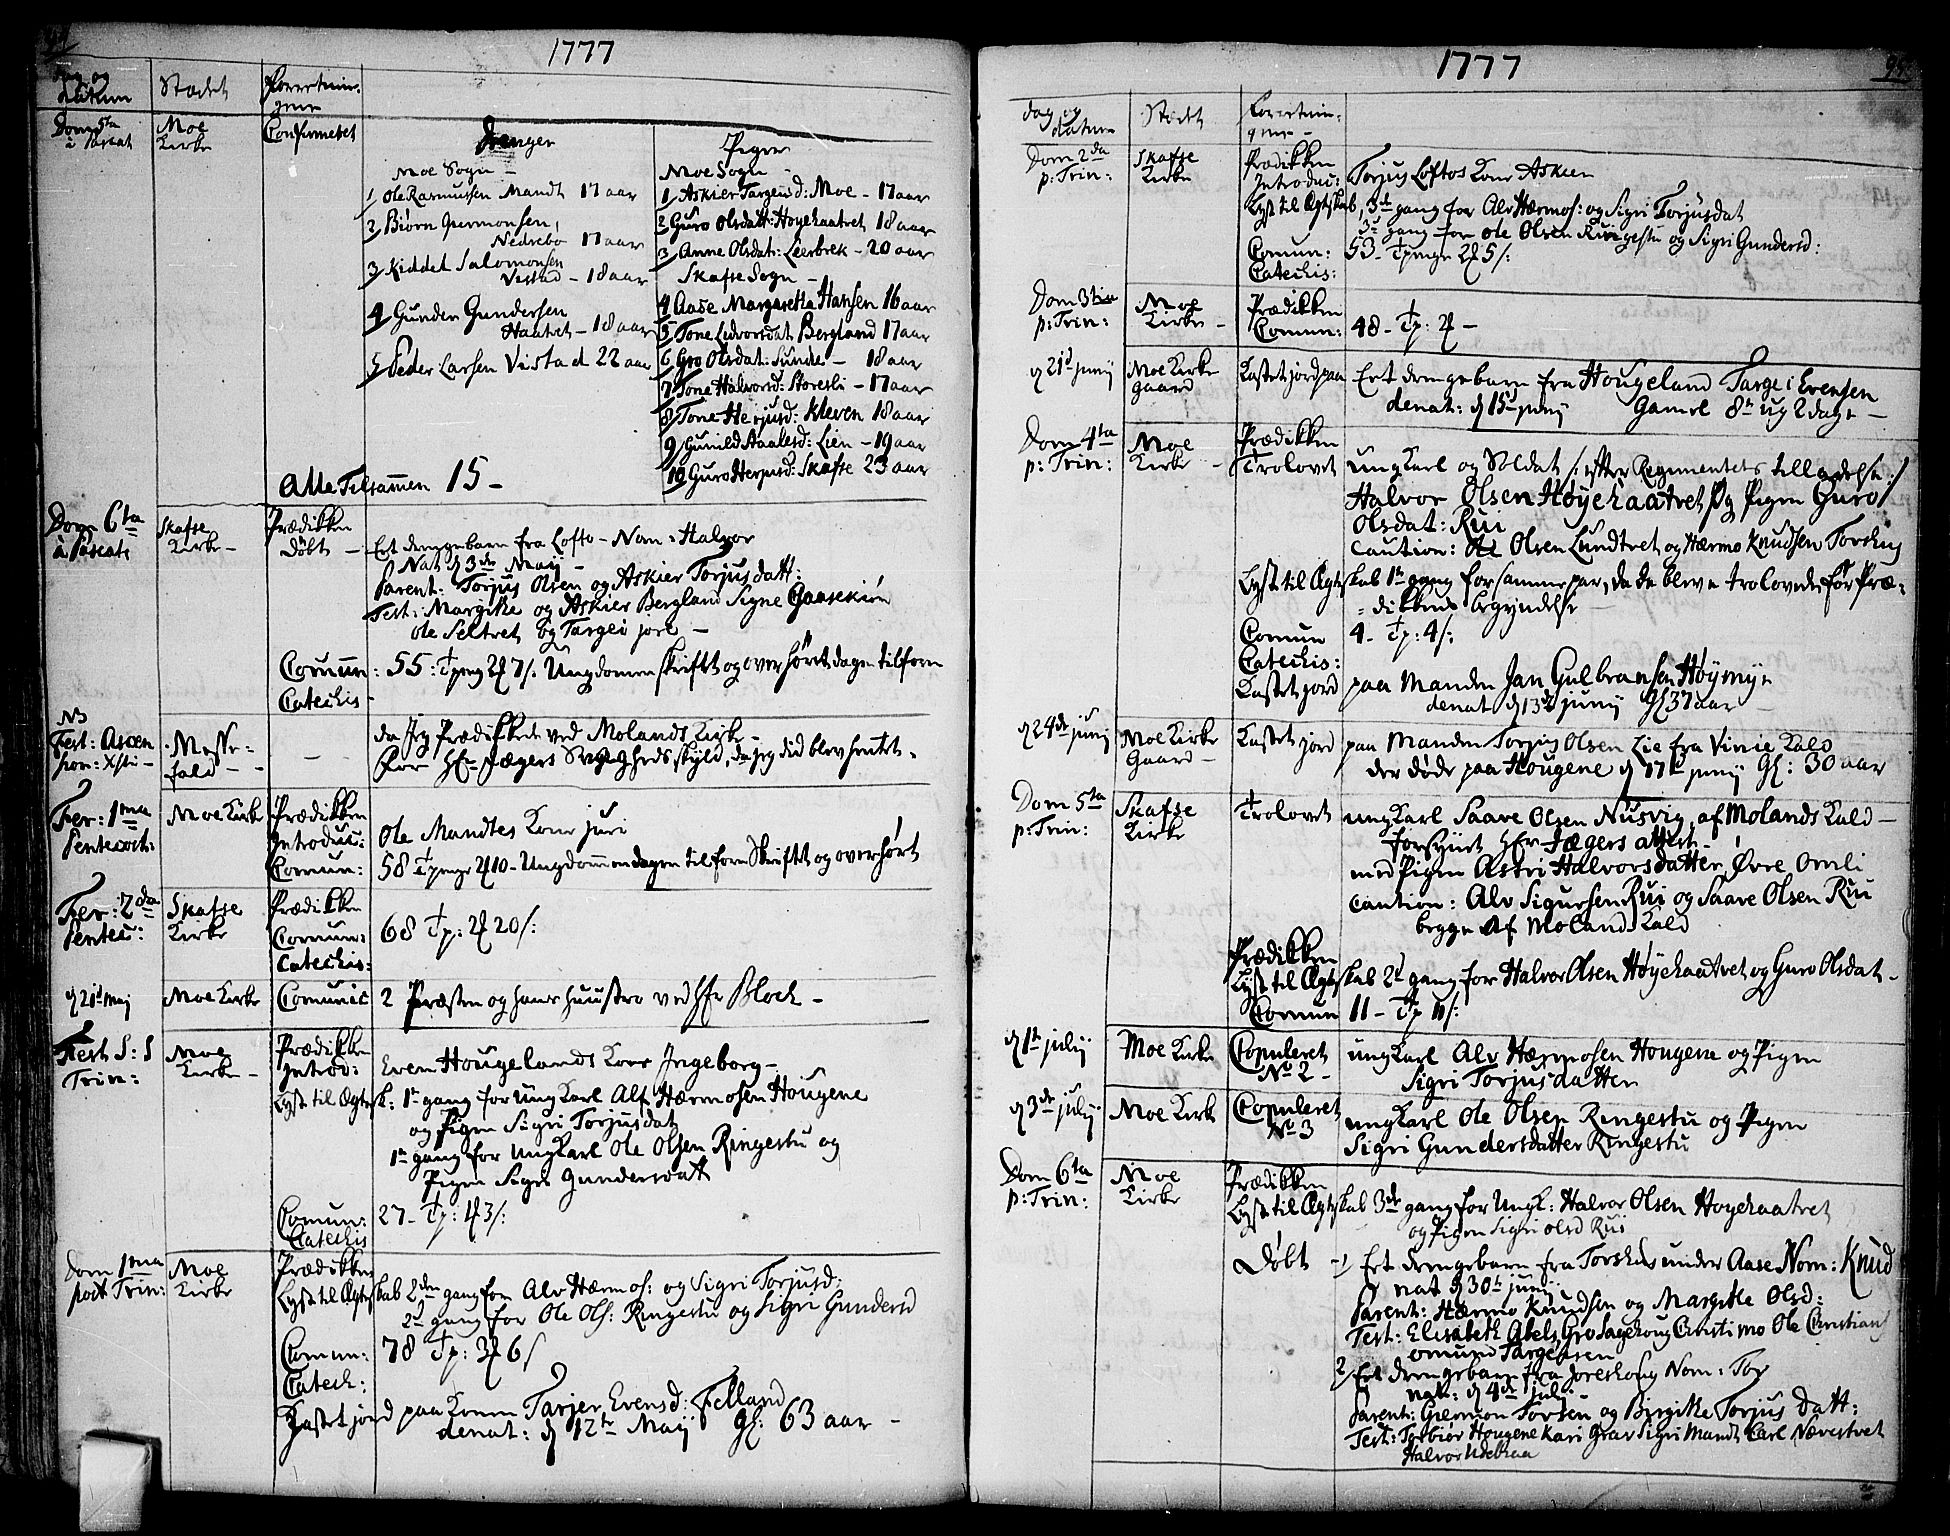 1777
Dag og Datum
Stædet
Forretningene
Dom 5ta à Pascat
Moe Kirke
Confirmeret
Drenger
Moe Sogn –
1/ Ole Rasmussen Mandt 17 aar
2/ Biørn Giermonsen,
Nedrebø 17 aar
3/ Kiddel Salomonsen
Vistad – 18 aar
4 Gunder Gundersen
Haatvet – 18 aar
5/ Peder Larsen Vistad 22 aar
Piger
Moe Sogn –
1/ Askier Targeisd: Moe – 17 aar
2/ Guro Olsdatt: Høyehaatvet 18 aar
3/ Anne Olsdat: Leerbrek – 20 aar
Skafse Sogn –
4 Aase Margaretha Hansen 16 aar
5/ Tone Ledvorsdat Bergland 17 aar
6/ Gro Olsdat: Sunde – 18 aar
7/ Tone Halvorsd: Storesli – 17 aar
8/ Tone Herjusd: Kleven 18 aar
9/ Gunild Aaalesd: Lien – 19 aar
10/ Guro Herjusd: Skafse 23 aar
Alle Tilsammen 15 –
Dom 6ta à Pascate
Skafse Kirke –
Prædikken
Døbt – Ert drengebarn fra Lofto – Nom: Halvor
Nat: d 3de Maij –
Parent: Torjus Olsen og Askier Torjusdatt:
Test: Margitke og Askier Bergland Signe Gaasekiøn
Ole Seltvet og Targei jore –
Comun: 55: Tpeng 2 7/: Ungdomen skriftet og overhørt dagen tilforn
Catechis –
NB
Fest: Ascen
sion: Xsti –
Messefald –
da Jeg Prædikkede ved Molands Kirke –
For Hr Jægers Svaghds skyld, da jeg did blev hentet.
Fer: 1ma Pentecost:
Moe Kirke
Prædikken
Introduc: Ole Mandtes Kone juri
Comun: 58 Tpenge 10 – Ungdommen dagen tilforn Skriftet og overhørt
Fer: 2da Pentec:
Skafse Kirke
Prædikken
Comun: 68 Tp: 2 20/:
Catechis:
d 21d Maj
Moe Kirke
Comunic 2 Præsten og hans huustro ved Hr Block –
Fest S: S Trin:
Moe Kirke –
Prædikken
Introd: Even Hougelands Kone Ingeborg –
Lyst til Ægtesk: 1te gang for Ung Karl Alf Hermosen Hougene
og Pigen Sigri Torjusdat
1te gang for Ung Karl Ole Olsen Ringestu og
Pigen Sigri Gundersdat
Comun: 27 – Tp: 43/:
Catechis
Dom 1ma post Trin:
Moe Kirke
Prædikken
Lyst til Ægteskab 2den gang for Alv Hærmos: og Sigri Torjusd:
2d gang for Ole Ols: Ringestu og Sigri Gundersd
Comun: 78 Tp: 3 6/
Catech:
Kastet jord paa Konen Tarjer Evensd: Felland
denat: d 12te Maij gl: 63 aar –
1777
Dag og datum
Stædet
Forretningene –
Dom 2da p: Trin:
Skafse Kirke
Prædikken
Introduc: Torjus Loftos Kone Askier
Lyst til Ægteskab, 3de gang for Alv Hærmos: og Sigri Torjusdat
3de gang for Ole Olsen Ringestu og Sigri Gundersd:
Comun: 53 – Tpenge 2 5/:
Catechis:
Dom 3tia p: Trin:
Moe Kirke –
Prædikken
Comun: 48 – Tp: 2 –
d 21d junij
Moe Kirke gaard
Kastet jord paa Ert drengebarn fra Hougeland Targei Evensen
denat: d 15d junij Gamel 8te ug 2 dage –
Dom 4ta p: Trin:
Moe Kirke –
Prædikken
Trolovet ung Karl og Soldat /: efter Regimentets tilladelse :/
Halvor Olsen Høyehaatvet og Pigen Guro
Olsdat: Rui
Caution: Ole Olsen Lundtvet og Hærmo Knudsen Torshus
Lyst til Ægteskab 1te gang for samme par, da de bleve trolovede for Præ-
dikkens begyndelse –
Comun 4 – Tp: 4/:
Catechis:
Kastet jord paa Manden Jan Gulbransen Høymyr
denat d 13d junij Gl 37 aar –
d 24de junij
Moe Kirke Gaard –
Kastet jord paa Manden Torjus Olsen Lie fra Vinie Kald
der døde paa Hougene d 17d junij Gl: 30 aar
Dom 5ta p: Trin:
Skafse Kirke
Trolovet ung Karl Saave Olsen Nusvig af Molands Kald –
forsynt Hr Jægers attest –
med Pigen Astri Halvorsdatter Øvre Omli
Caution: Alv Sigursen Rui og Saave Olsen Rui
begge af Molands Kald
Prædikken
Lyst til Ægteskab 2d gang for Halvor Olsen Høyehaatvet og Guro Olsdat –
Comun 11 – Tp 11/:
d 1te julij
Moe Kirke
Copuleret No 2 –
ung Karl Alv Hærmosen Hougene og Pigen
Sigri Torjusdatter
d 3de julij
Moe Kirke
Copuleret No 3
ung Karl Ole Olsen Ringestu og Pigen
Sigri Gundersdatter Ringestu
Dom 6ta p: Trin:
Moe Kirke
Prædikken
Lyst til Ægteskab 3de gang for Ung K: Halvor Olsen Høyehaatvet
og Pigen Sigri Olsd Rui
Døbt – 1/ Ert drengebarn fra Torshus under Aase Nom: Knud
nat d 30te junij
Parent: Hærmo Knudsen og Margitke Olsd:
Test: Elisabeth Abels, Gro Sagekoug Christi mo Ole Christians
omund Targeisen
2/ Ert drengebarn fra joreskoug Nom: Tor
nat: d 4de julj –
Parent: Giermon Torsen og Birgitke Torjus Datt:
Test: Torbiør Hougene Kari Grav Sigri Mandt Carl Nævestvet
Halvor Udebraa